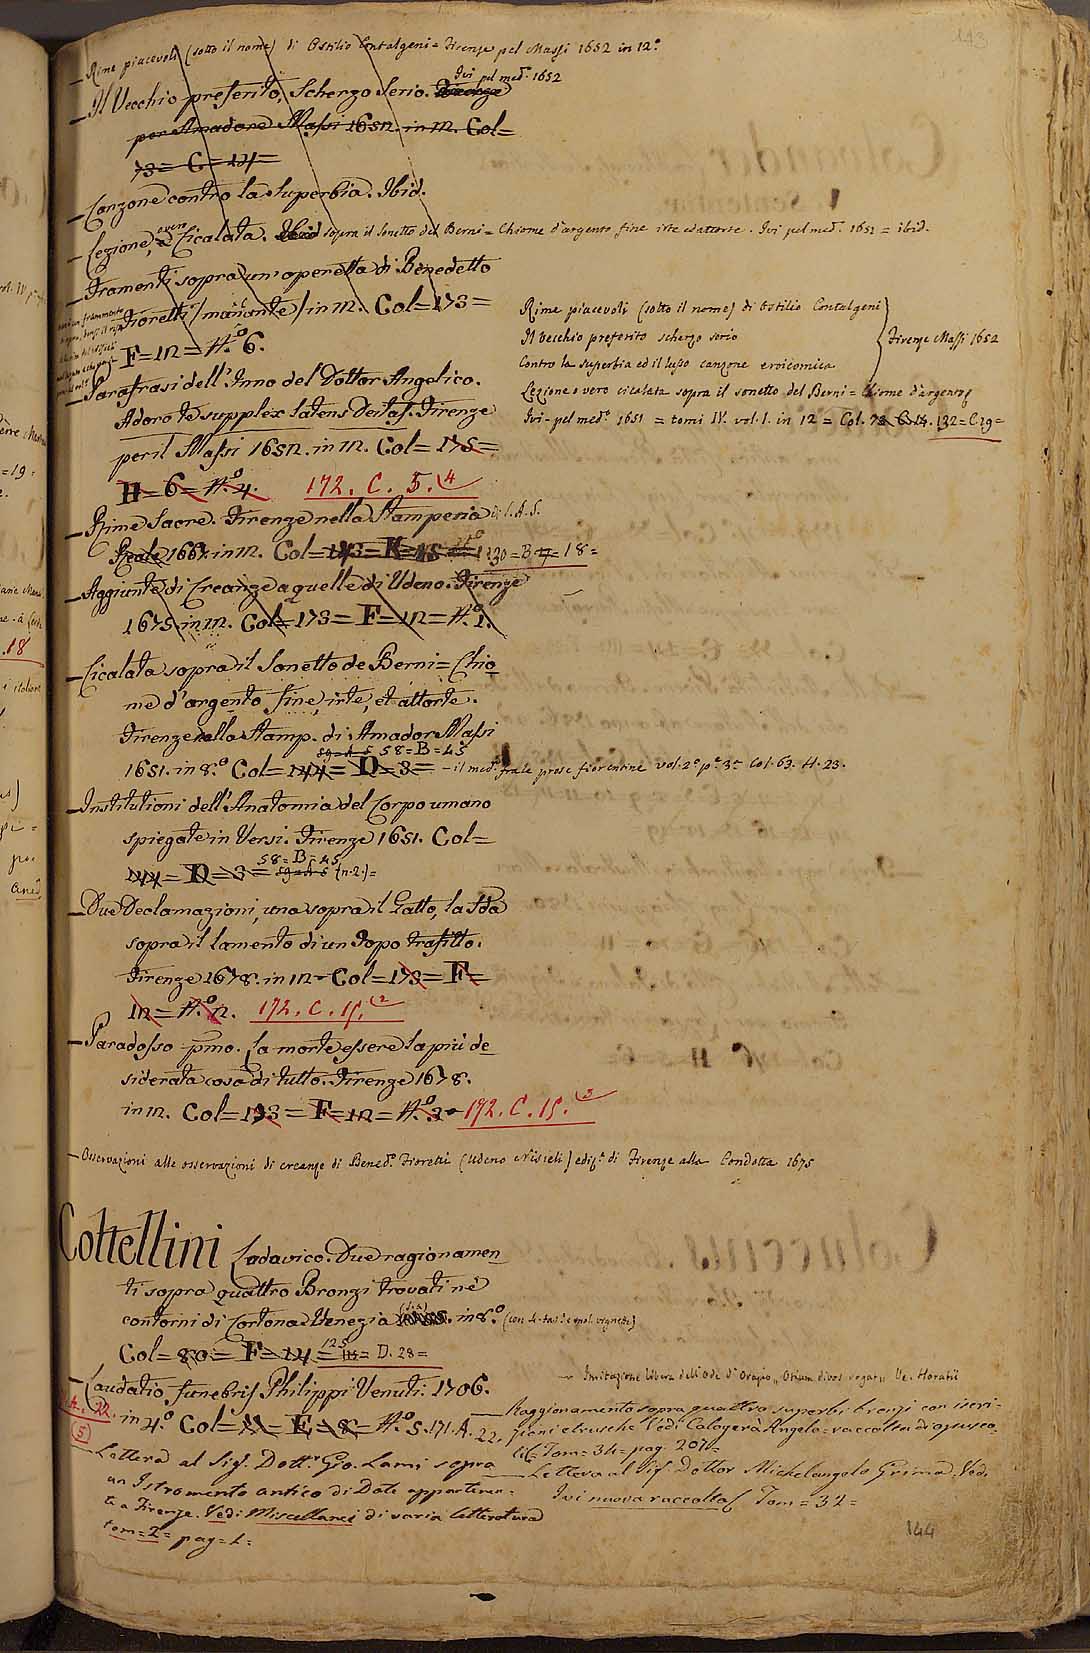 143
— Rime piacevoli (sotto il nome) di Ostilio Contalgeni = Firenze pel Massi 1652 in 12.°
— Il Vecchio preferito, Scherzo Serio. Firenze Ivi pel med.° 1652
per Amadore Massi 1652. in 12. Col=
73= C=14=
— Canzone contro la Superbia. Ibid.
— Lezione, o vero Cicalata. Ibid sopra il Sonetto del Berni = Chiome d'argento fine irte ed attorte. Ivi pel med.° 1651 = ibid.
— Framenti sopra un' operetta di Benedetto
Fioretti /mancante/ in 12. Col=173=
F=12=N.° 6.
— Parafrasi dell' Inno del Dottor Angelico.
Adoro te supplex latens Deitas. Firenze
per il Massi 1652. in 12. Col=175=
H=6=N.° 4. 172. C. 5. (4
— Rime Sacre. Firenze nella Stamperia di S.A.S.
Reale 1667. in 12. Col= 130=B 4=18=
— Aggiunte di Creanze a quelle di Udeno. Firenze
1675. in 12. Col=173=F=12=N.° 1.
— Cicalata sopra il Sonetto de Berni = Chio
me d'argento fine, irte, et attorte.
Firenze nella Stamp. di Amador Massi
58=B=45
1651. in 8.° Col=144=D=3= — il med.° fra le prose fiorentine vol. 2° p.e 3.a Col. 63. H. 23.
— Institutioni dell' Anatomia del Corpo umano
spiegate in Versi. Firenze 1651. Col=
144=D=3= 58=B=45 (n. 2.)=
— Due Declamazioni, una sopra il Gatto, la 2da
sopra il lamento di un Topo trafitto.
Firenze 1678. in 12 = Col=173=F=
12=N.° 2. 172. C. 15. (2
— Paradosso pmo. La morte essere la più de
siderata cosa di tutto. Firenze 1678.
in 12. Col=173=F=12=N.° 3 = 172. C. 15. (3
— Osservazioni alle osservazioni di creanze di Bened.° Fioretti (Udeno Nisieli) ediz.e di Firenze alla Condotta 1675
Rime piacevoli (sotto il nome) di Ostilio Contalgeni
Il Vecchio preferito scherzo serio
Firenze Massi 1652
Contro la superbia ed il lusso canzone eroicomica
Lezione o vero cicalata sopra il sonetto del Berni = Chiome d'argento
Ivi = pel med.° 1651 = tomi IV. vol. I. in 12 = Col. 73. C. 14. 132=C 29=
Coltellini Lodovico. Due ragionamen
ti sopra quattro Bronzi trovati ne
contorni di Cortona. Venezia in 8.° (con 4. tav. e mol. vignete)
Col=80=F=14= 125 = D. 28=
— Laudatio funebris Philippi Venuti. 1706.
in 4.° Col=11=E=18=N.° 5. 171. A. 22.
A. 22.
(5)
— Lettera al Sig. Dott.r Gio. Lami sopra
un Istromento antico di Dote appartenen=
te a Firenze. Vedi Miscellanei di varia letteratura
tom=2= pag=1=
— Invitazione libera dell' Ode d' Orazio „ Otium divos rogat „ Ve. Horatii
— Raggionamento sopra quattro superbi bronzi con iscri=
zioni etrusche Vedi Calogerà Angelo = raccolta di opusco
li = Tom=34= pag. 207=
— Lettera al Sig Dottor Michelangelo Grima. Ved.
Ivi nuova raccolta Tom=32=
144